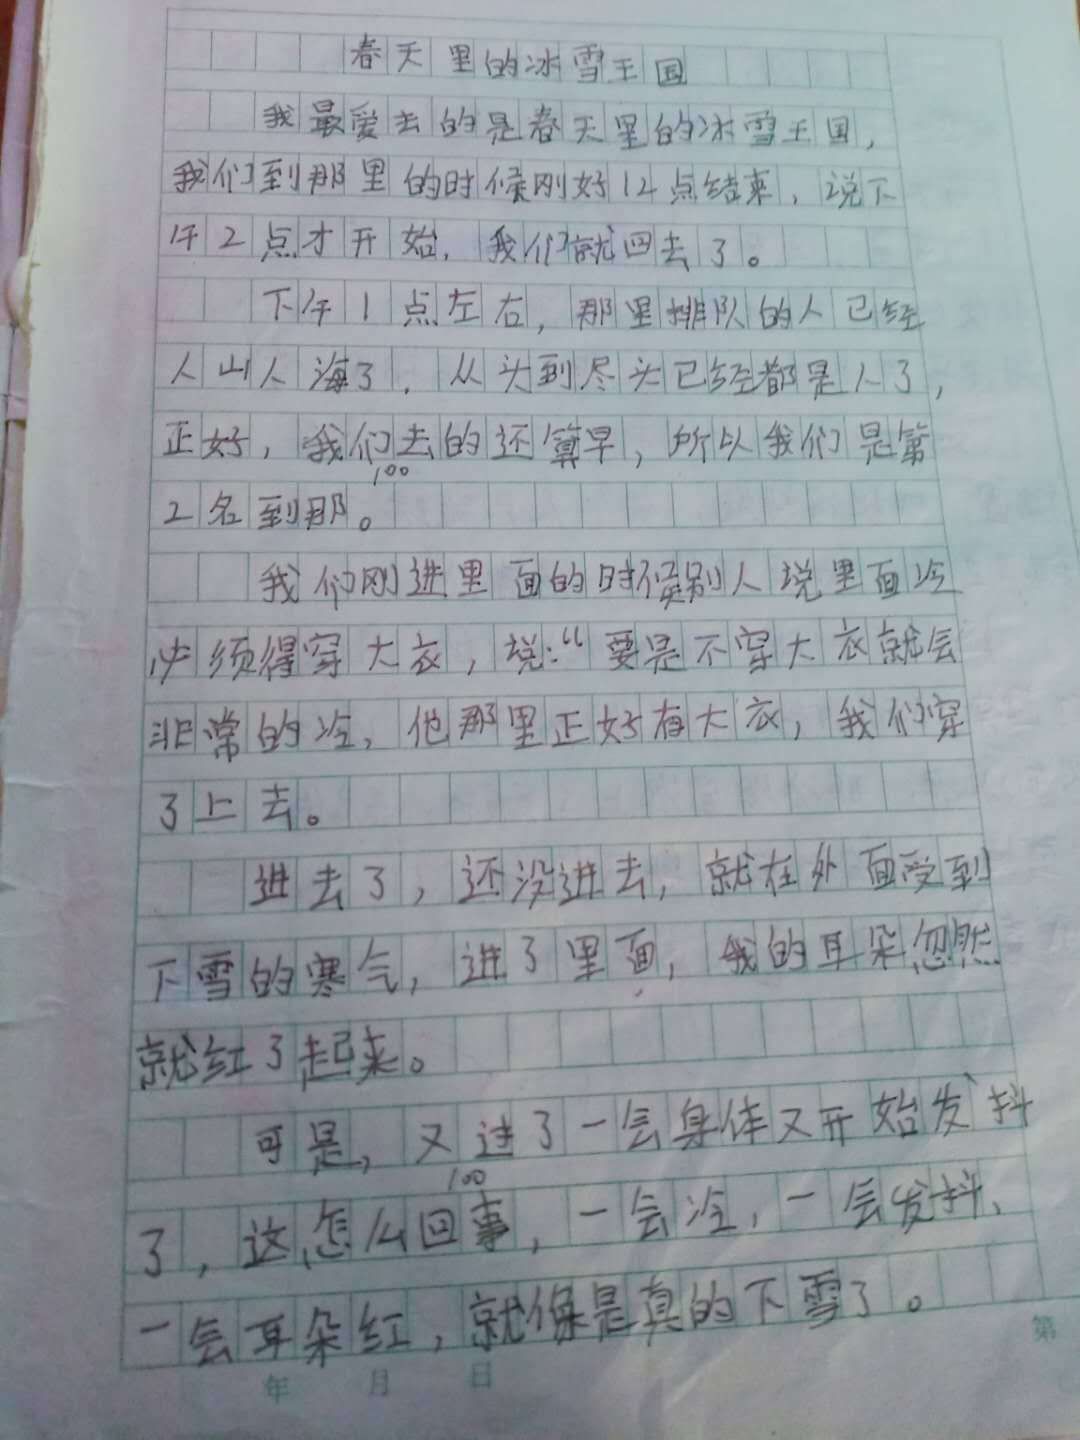 春天里的冰雪王国
我最爱去的是春天里的冰雪王国，
我们到那里的时候刚好12点结束，说下
午2点才开始，我们就回去了。
下午1点左右，那里排队的人已经
人山人海了，从头到尽头已经都是人了，
正好，我们去的还算早，所以我们是第
100
2名到那。
我们刚进里面的时候别人说里面冷
必须得穿大衣，说：“要是不穿大衣就会
非常的冷，他那里正好有大衣，我们穿
了上去。
进去了，还没进去，就在外面受到
下雪的寒气，进了里面，我的耳朵忽然
就红了起来。
可是，又过了一会身体又开始发抖
100
了，这怎么回事，一会冷，一会发抖、
一会耳朵红，就像是真的下雪了。
年 月 日
第